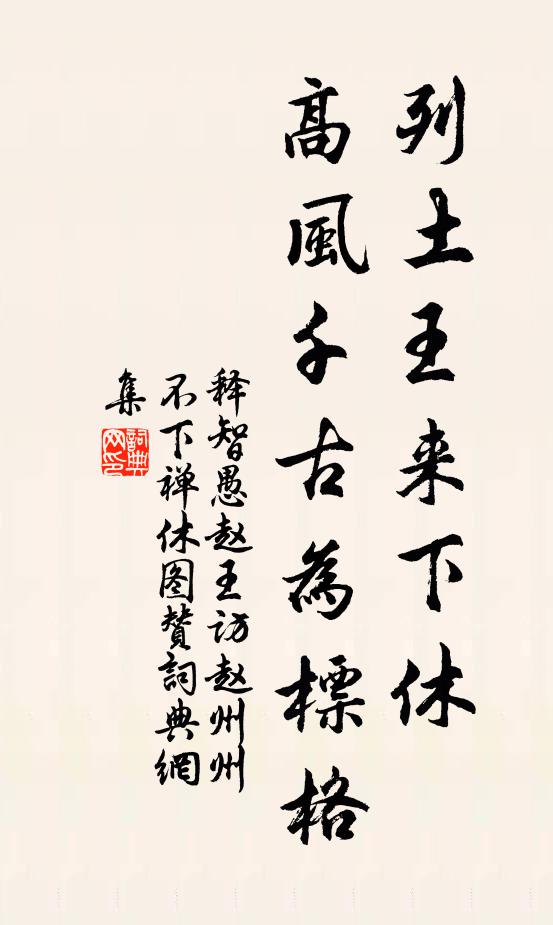 列土王来下休
高風千古為標格
释智愚赵王访赵州州
不下禅休图赞詞典網
集
詞典網印